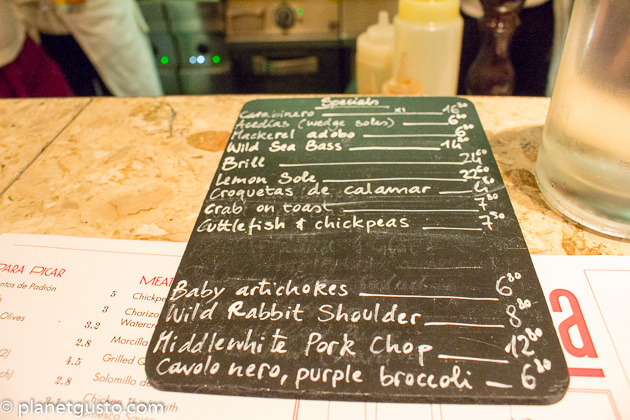 Specials
Carabinero x1 16.80
Acedías (wedge soles) 6.80
Mackerel adobo 6.80
Wild Sea Bass 14.80
Brill 24.60
Lemon Sole 22.60
Croquetas de calamar
Crab on toast 7.80
Cuttlefish & chickpeas 7.50
Baby artichokes 6.80
Wild Rabbit Shoulder 8.80
Middlewhite Pork Chop 12.80
Cavolo nero, purple broccoli 6.80
PARA PICAR
ntos de Padrón 5
Olives 3.2
2.8
(2) 4.5
2.8
MEAT
Chickpe
Chorizo
Watercr
Morcilla
Grilled G
Solomillo d
Chicken
a
© planetgusto.com